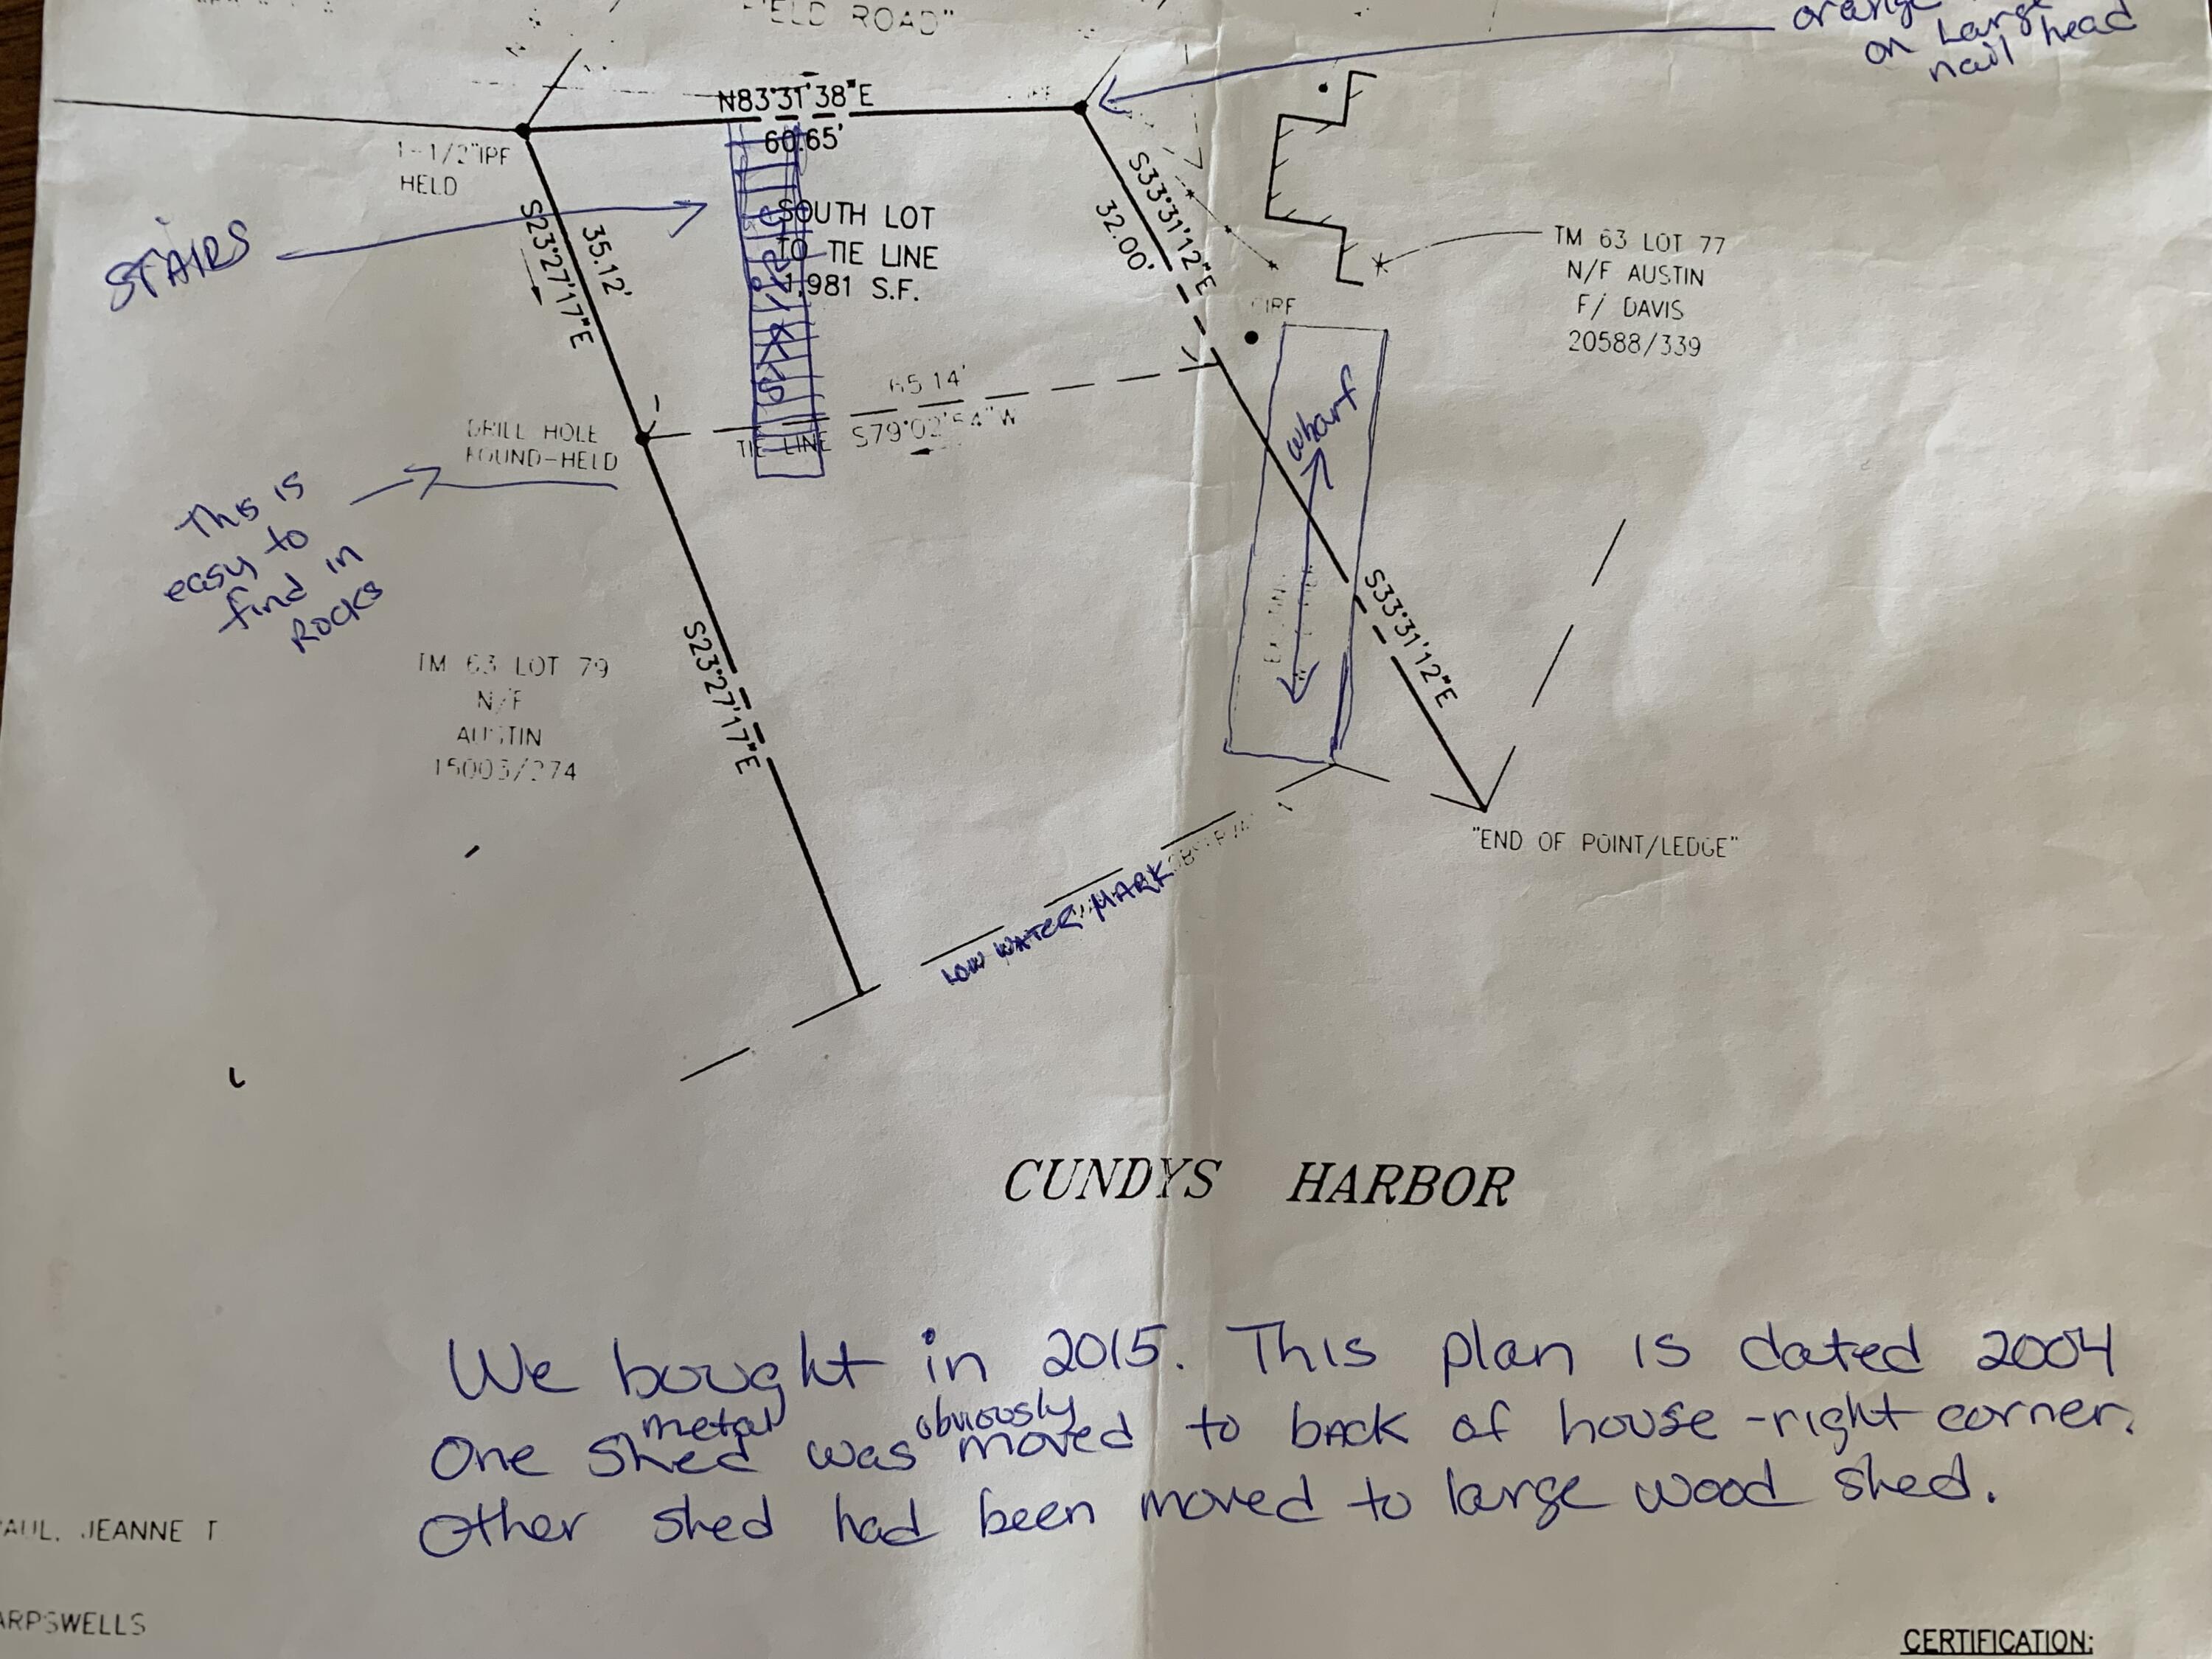 ELD ROAD"
orange
on Large
nail head
N83°31'38"E
60.65'
1-1/2"IPF
HELD
S23°27'17"E
35.12'
STAIRS
STAIRS
SOUTH LOT
TO TIE LINE
1,981 S.F.
S33°31'12"E
32.00'
TM 63 LOT 77
N/F AUSTIN
F/ DAVIS
20588/339
IPF
65.14'
TIE LINE S79°02'54"W
DRILL HOLE
FOUND-HELD
wharf
This is
easy to
find in
Rocks
TM 63 LOT 79
N/F
AUSTIN
15003/274
S23°27'17"E
S33°31'12"E
"END OF POINT/LEDGE"
LOW WATER MARK
CUNDYS HARBOR
We bought in 2015. This plan is dated 2004
One metal shed was obviously moved to back of house -right corner.
Other shed had been moved to large wood shed.
AUL, JEANNE T
ARPSWELLS
CERTIFICATION: